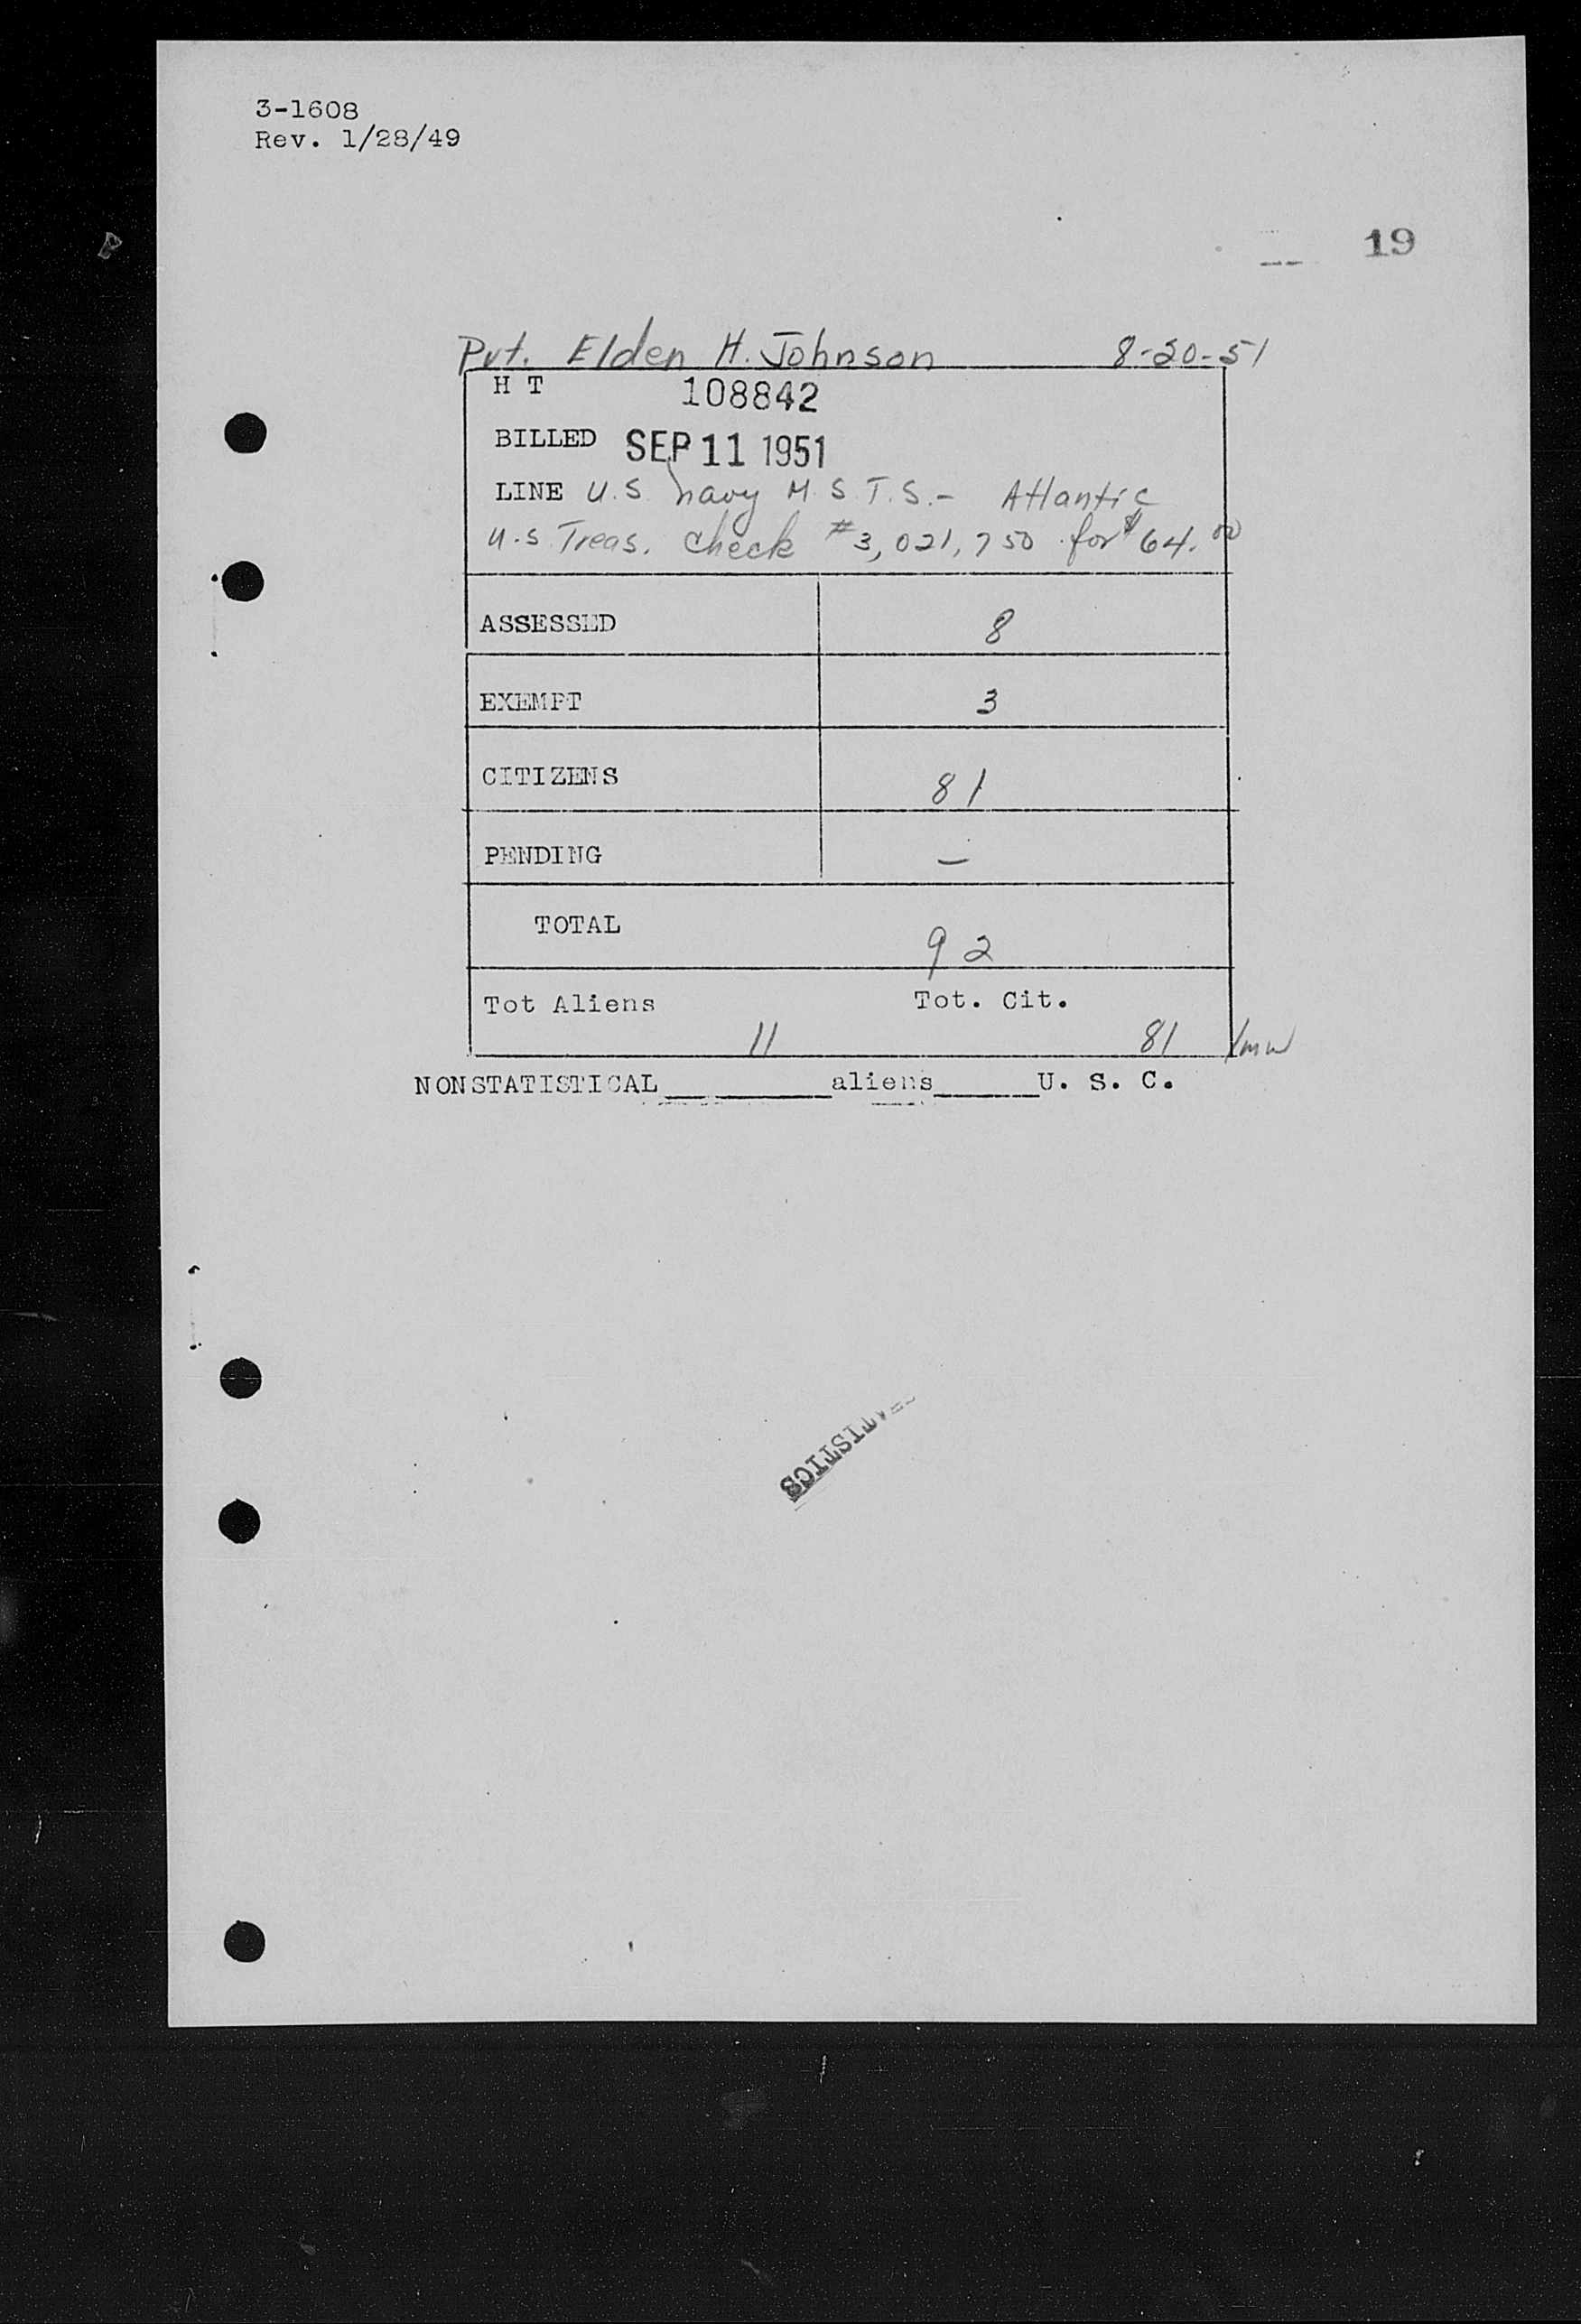 3-1608
Rev. 1/28/49
19
Pvt. Elden H. Johnson 8-20-51
H T 108842
BILLED SEP 11 1951
LINE U.S. Navy M.S.T.S.- Atlantic
U.S. Treas. Check #3,021,750 for $64.00
ASSESSED 8
EXEMPT 3
CITIZENS 81
PENDING —
TOTAL 92
Tot Aliens Tot. Cit.
11 81 /mw
NONSTATISTICAL__________aliens______U. S. C.
STATISTICS